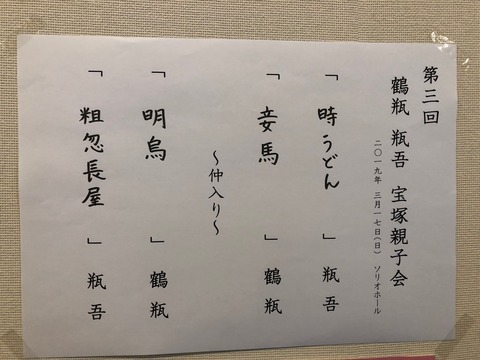 第三回
鶴瓶 瓶吾 宝塚親子会
二〇一九年 三月一七日(日) ソリオホール
「 時うどん 」 瓶吾
「 妾馬 」 鶴瓶
～仲入り～
「 明烏 」 鶴瓶
「 粗忽長屋 」 瓶吾